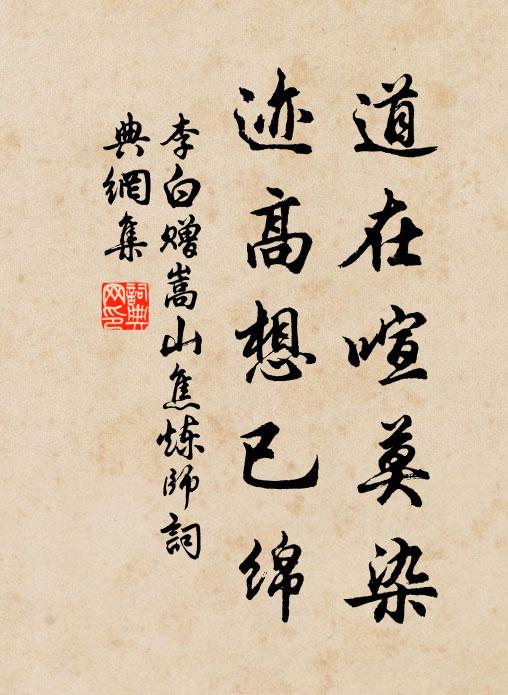 道在喧莫染
迹高想已绵
李白赠嵩山焦炼师詞
典網集
詞典网印